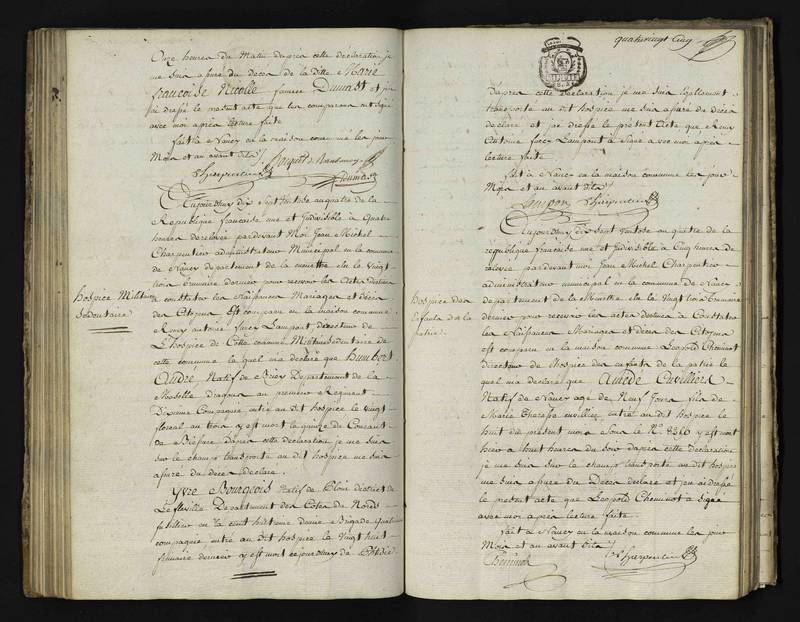 Onze heures du Matin dapres cette declaration je
me suis assuré du deces de la ditte Marie
francoise Nicolle femme Dumast et j'en
ai dressé le present acte que les comparans ont signé
avec moi après lecture faite
fait à Nancy en la maison commune les jour
Mois et an avant dits
Charpentier
Dumast
Aujourdhuy dix sept Ventose an quatre de la
Republique francaise une et Indivisible à Quatre
heures de relevée pardevant Moi Jean Michel
Charpentier administrateur Municipal en la commune
de Nancy departement de la meurthe élu le Vingt
trois brumaire dernier pour recevoir les actes destinés
Hospice Militaire
Sedentaire
à constater les Naissances Mariages et décès
des Citoyens Est comparu en la maison commune
Remy antoine directeur de
L'hospice de Cette commune Militaire sedentaire de
cette commune le quel m'a déclaré que humbert
André Natif de Departement de la
Moselle dragon au premier Régiment
Dixieme Compagnie entré au dit hospice le vingt
floreal an trois y est mort le quinze de Courant
de blessure dapres cette declaration je me suis
sur le champ transporté au dit hospice me suis
assuré du deces declaré.
Yve Bourgeois natif de district de
Departement des Cotes du Nord
fusillier en la cent huitieme demie Brigade quatrieme
compagnie entré au dit hospice le vingt huit
dernier y est mort cejourdhuy de
quatrevingt Cinq
Dapres cette declaration je me suis egallement
transporté au dit hospice me suis assuré du deces
declaré et j'ai dressé le present acte que Remy
Antoine a signé avec moi apres
lecture faite
fait à Nancy en la maison commune les jour
Mois et an avant dits
Charpentier
Aujourdhuy dix sept Ventose an quatre de la
republique francaise une et Indivisible à Cinq heures de
relevée pardevant moi Jean Michel Charpentier
administrateur municipal en la commune de Nancy
Hospice des
Enfants de la
patrie
departement de la Meurthe élu le Vingt trois Brumaire
dernier pour recevoir les actes destinés à Constater
les Naissances Mariages et deces des Citoyens
est comparu en la maison commune Leopold Cheminot
directeur de l'hospice des enfants de la patrie le
quel m'a declaré que Amède Cuvilliers
Natif de Nancy agé de Neuf jours fils de
Marie Therese cuvillier entré au dit hospice le
huit du present mois sous le N°. 8516 y est mort
hier à huit heures du soir dapres cette declaration
je me suis sur le champ transporté au dit hospice
me suis assuré du Deces declaré et j'en ai dressé
le present acte que Leopold Cheminot a signé
avec moi après lecture faite
fait à Nancy en la maison commune les jour
Mois et an avant dits
Charpentier
Cheminot